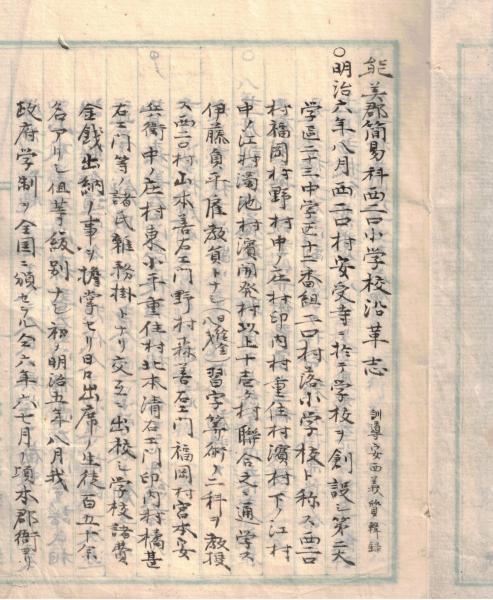 能美郡簡易科西二口小学校沿革志
訓導安西義質輯録
○明治六年八月西二口村安受寺ニ於テ学校ヲ創設シ第二大
学区二十三中学区十二番組二口村落小学校ト称ス西二口
村福岡村野村中ノ庄村印内村重住村濱村下ノ江村
中ノ江村濁池村濱開発村以上十壱ケ村聯合之ニ通学ス
伊藤貞平雇教員トナシ習字算術ノ二科ヲ教授
ス西二口村山本善右エ門野村森善右エ門福岡村宮本安
兵衛中ノ庄村東小平重住村北本清右エ門印内村橘甚
右エ門等ノ諸氏雑務掛トナリ交互ニ出校シ学校諸費
金銭出納ノ事ヲ擔掌セリ日々出席ノ生徒百五十余
名アリシ但等級別ナシ初メ明治五年八月我
政府学制ヲ全国ニ頒セラル仝六年六七月ノ頃本郡衙ヨリ